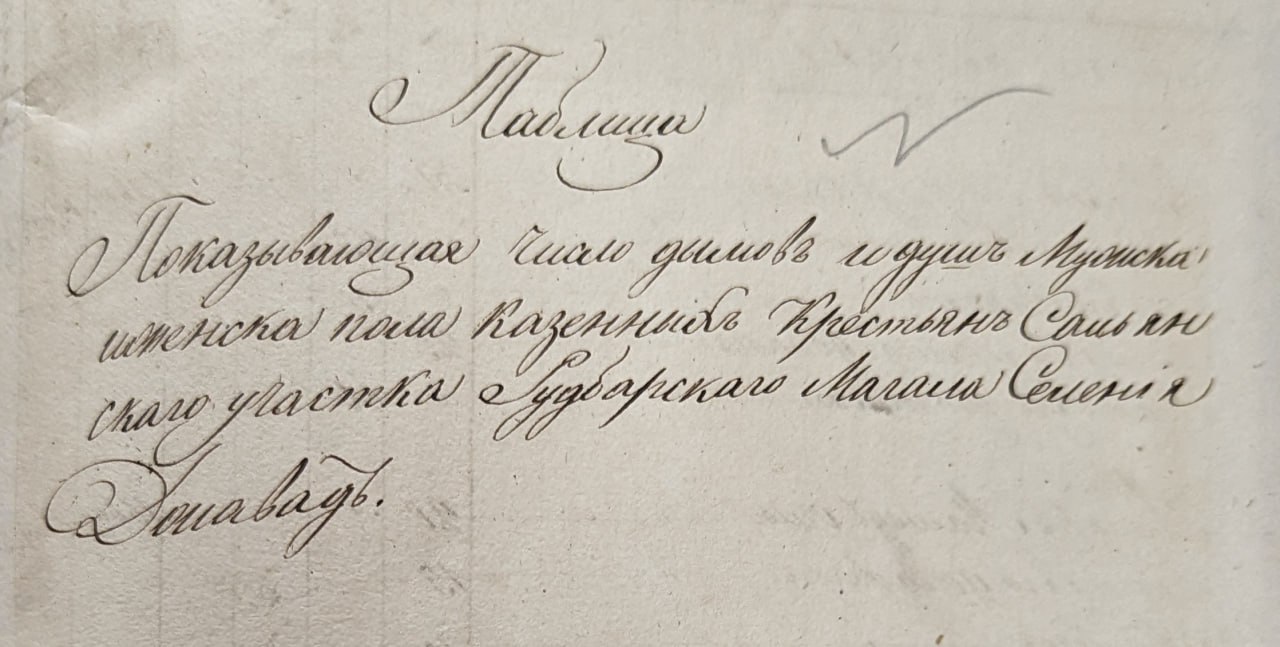 Таблица
Показывающая число дымовъ и душъ Мужска
иженска пола казенныхъ Крестьянъ Сальян
скаго участка Рудбарскаго Магала Селенія